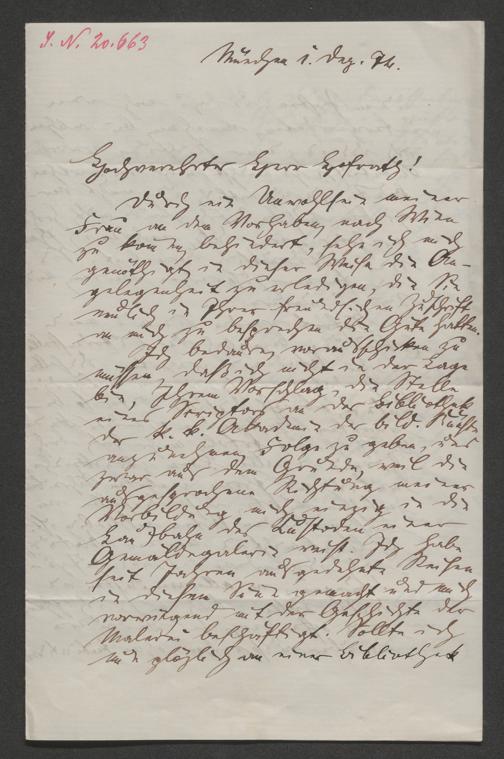 J. N. 20.663
München 1. Dez. 74.
Hochverehrter Herr Hofrath!
Durch ein Unwohlsein meiner
Frau an dem Vorhaben, nach Wien
zu kommen, behindert, sehe ich mich
genöthigt, in dieser Weise die An-
gelegenheit zu erledigen, die Sie
neulich in Ihrer freundlichen Zuschrift
an mich zu besprechen die Güte hatten.
Ich bedaure, vorausschicken zu
müssen, daß ich nicht in der Lage
bin, Ihrem Vorschlag, die Stelle
eines Scriptors an der Bibliothek
der k. k. Akademie der bild. Künste
anzunehmen, Folge zu geben, und
zwar aus dem Grunde, weil die
ausgesprochene Richtung meiner
Vorbildung mich einzig in die
Laufbahn des Kustoden einer
Gemäldegalerie weist. Ich habe
seit Jahren ausgedehnte Reisen
in diesem Sinne gemacht und mich
vorwiegend mit der Geschichte der
Malerei beschäftigt. Sollte ich
nun plötzlich an einer Bibliothek